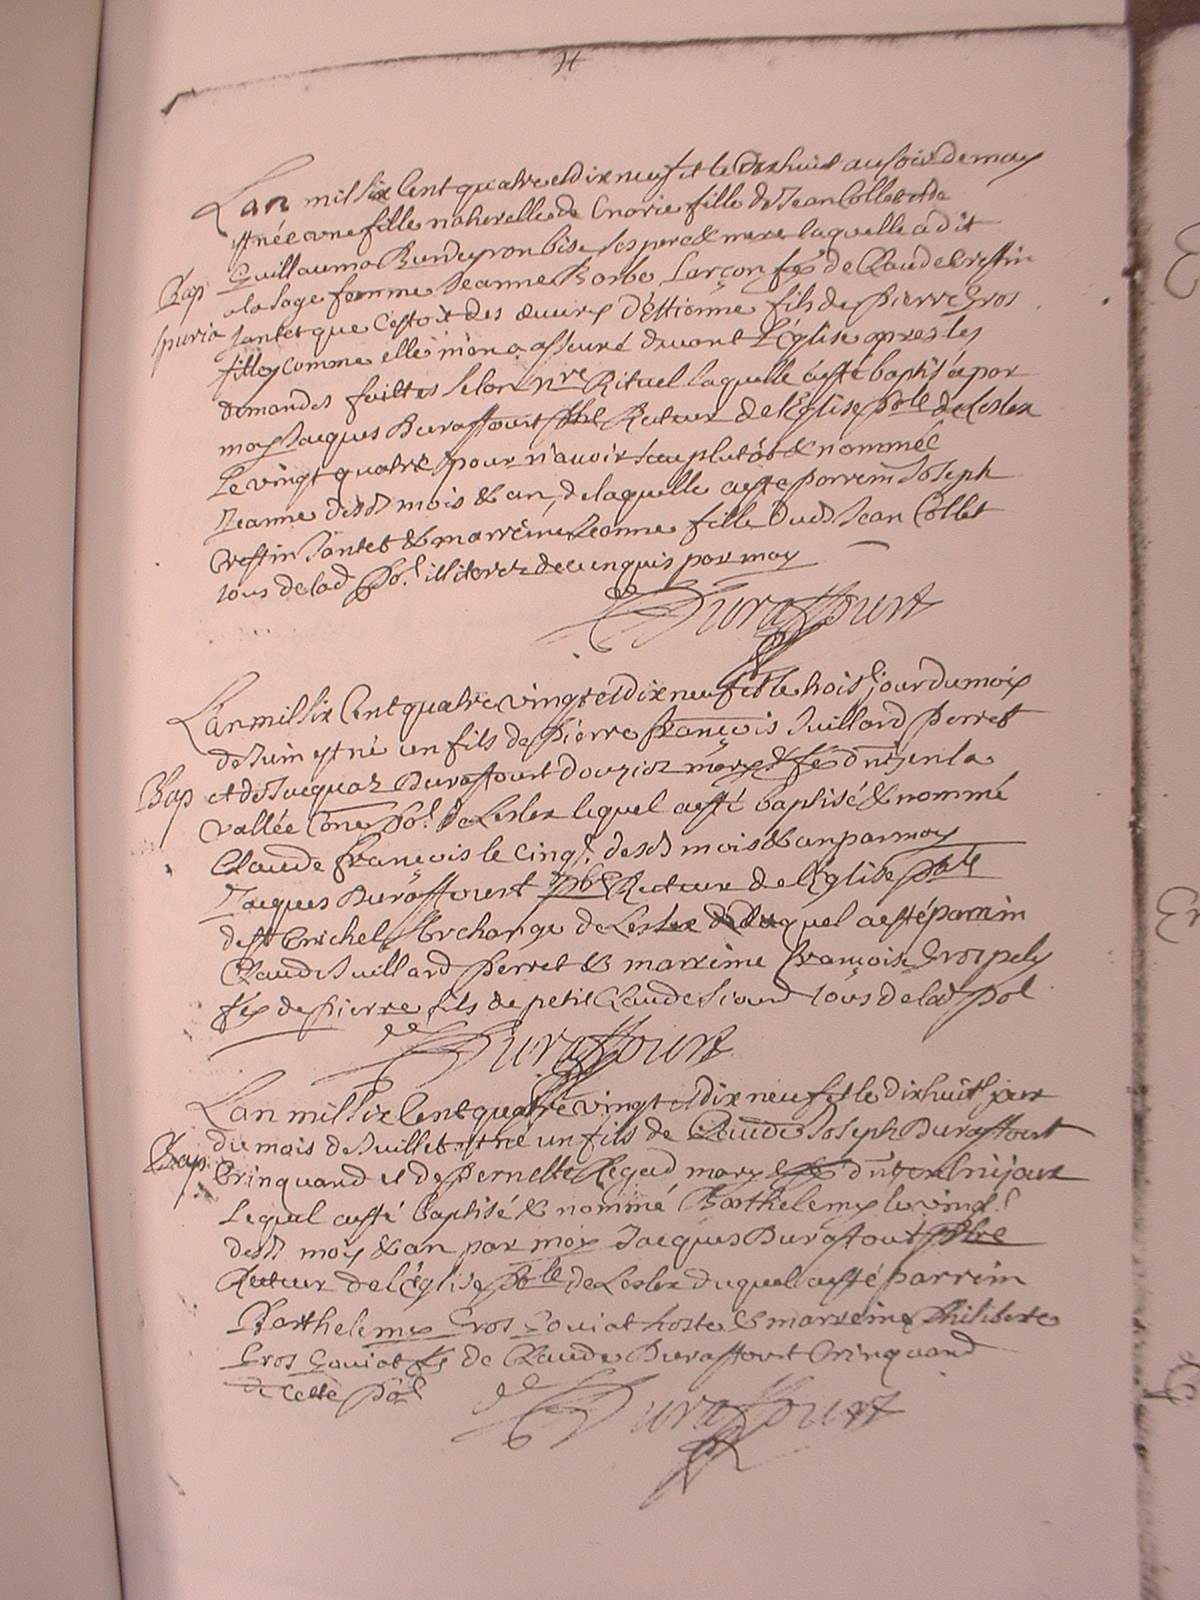 Lan mil six Cent quatre et dix neuf et le dix huit au soir de may
est née une fille naturelle de Marie fille de Jean Collet et de
Guillauma Burdeyron bise ses pere & mere laquelle a dit
Bap a la sage femme Jeanne Barbe Lançon fe de Claude Crestin
spuria Jantet que Cestoit des œuvres d'Estienne fils de Pierre Gros
filley comme elle m'en a asseuré devant l'Église apres les
demandes faittes selon nre Rituel laquelle a esté baptisée par
moy Jacques Duraffourt pbre Recteur de l'Église pole de Lesler
Le vingt quatre pour n'avoir sceu plutôt & nommée
Jeanne desd mois & an, de laquelle a esté parrein Joseph
Crestin Jantet & marreine Jeanne fille dud Jean Collet
tous de lad po.l illiteres de ce enquis par moy
Duraffourt
Lan mil six Cent quatre vingt et dix neuf et le trois.e jour du mois
de Juin est né un fils de Pierre François Juillard Perret
Bap et de Jacqua Duraffourt d'ouziez marys & fe dnts en la
vallée Cone po.l de Lesler lequel a esté baptisé & nommé
Claude François le cinq.e desd mois & an par moy
Jacques Duraffourt pbre Recteur de l'Église pole
de St Michel Archange de Lesler duquel a esté parrein
Claude Juillard Perret & marreine Françoise Gros pely
fe de Pierre fils de petit Claude tous de lad pol
Duraffourt
Lan mil six Cent quatre vingt et dix neuf et le dix huit.e jour
du mois de Juillet est né un fils de Claude Joseph Duraffourt
Bap Crinquand et de Pernette Regad mary & fe dnts
Lequel a esté baptisé & nommé Barthelemy le vingt.e
desd moy & an par moy Jacques Duraffourt pbre
Recteur de l'Église pole de Lesler duquel a esté parrein
Barthelemy Gros Goviat hoste & marreine Philiberte
Gros Goviat fe de Claude Duraffourt Crinquand
de Cette pol
Duraffourt